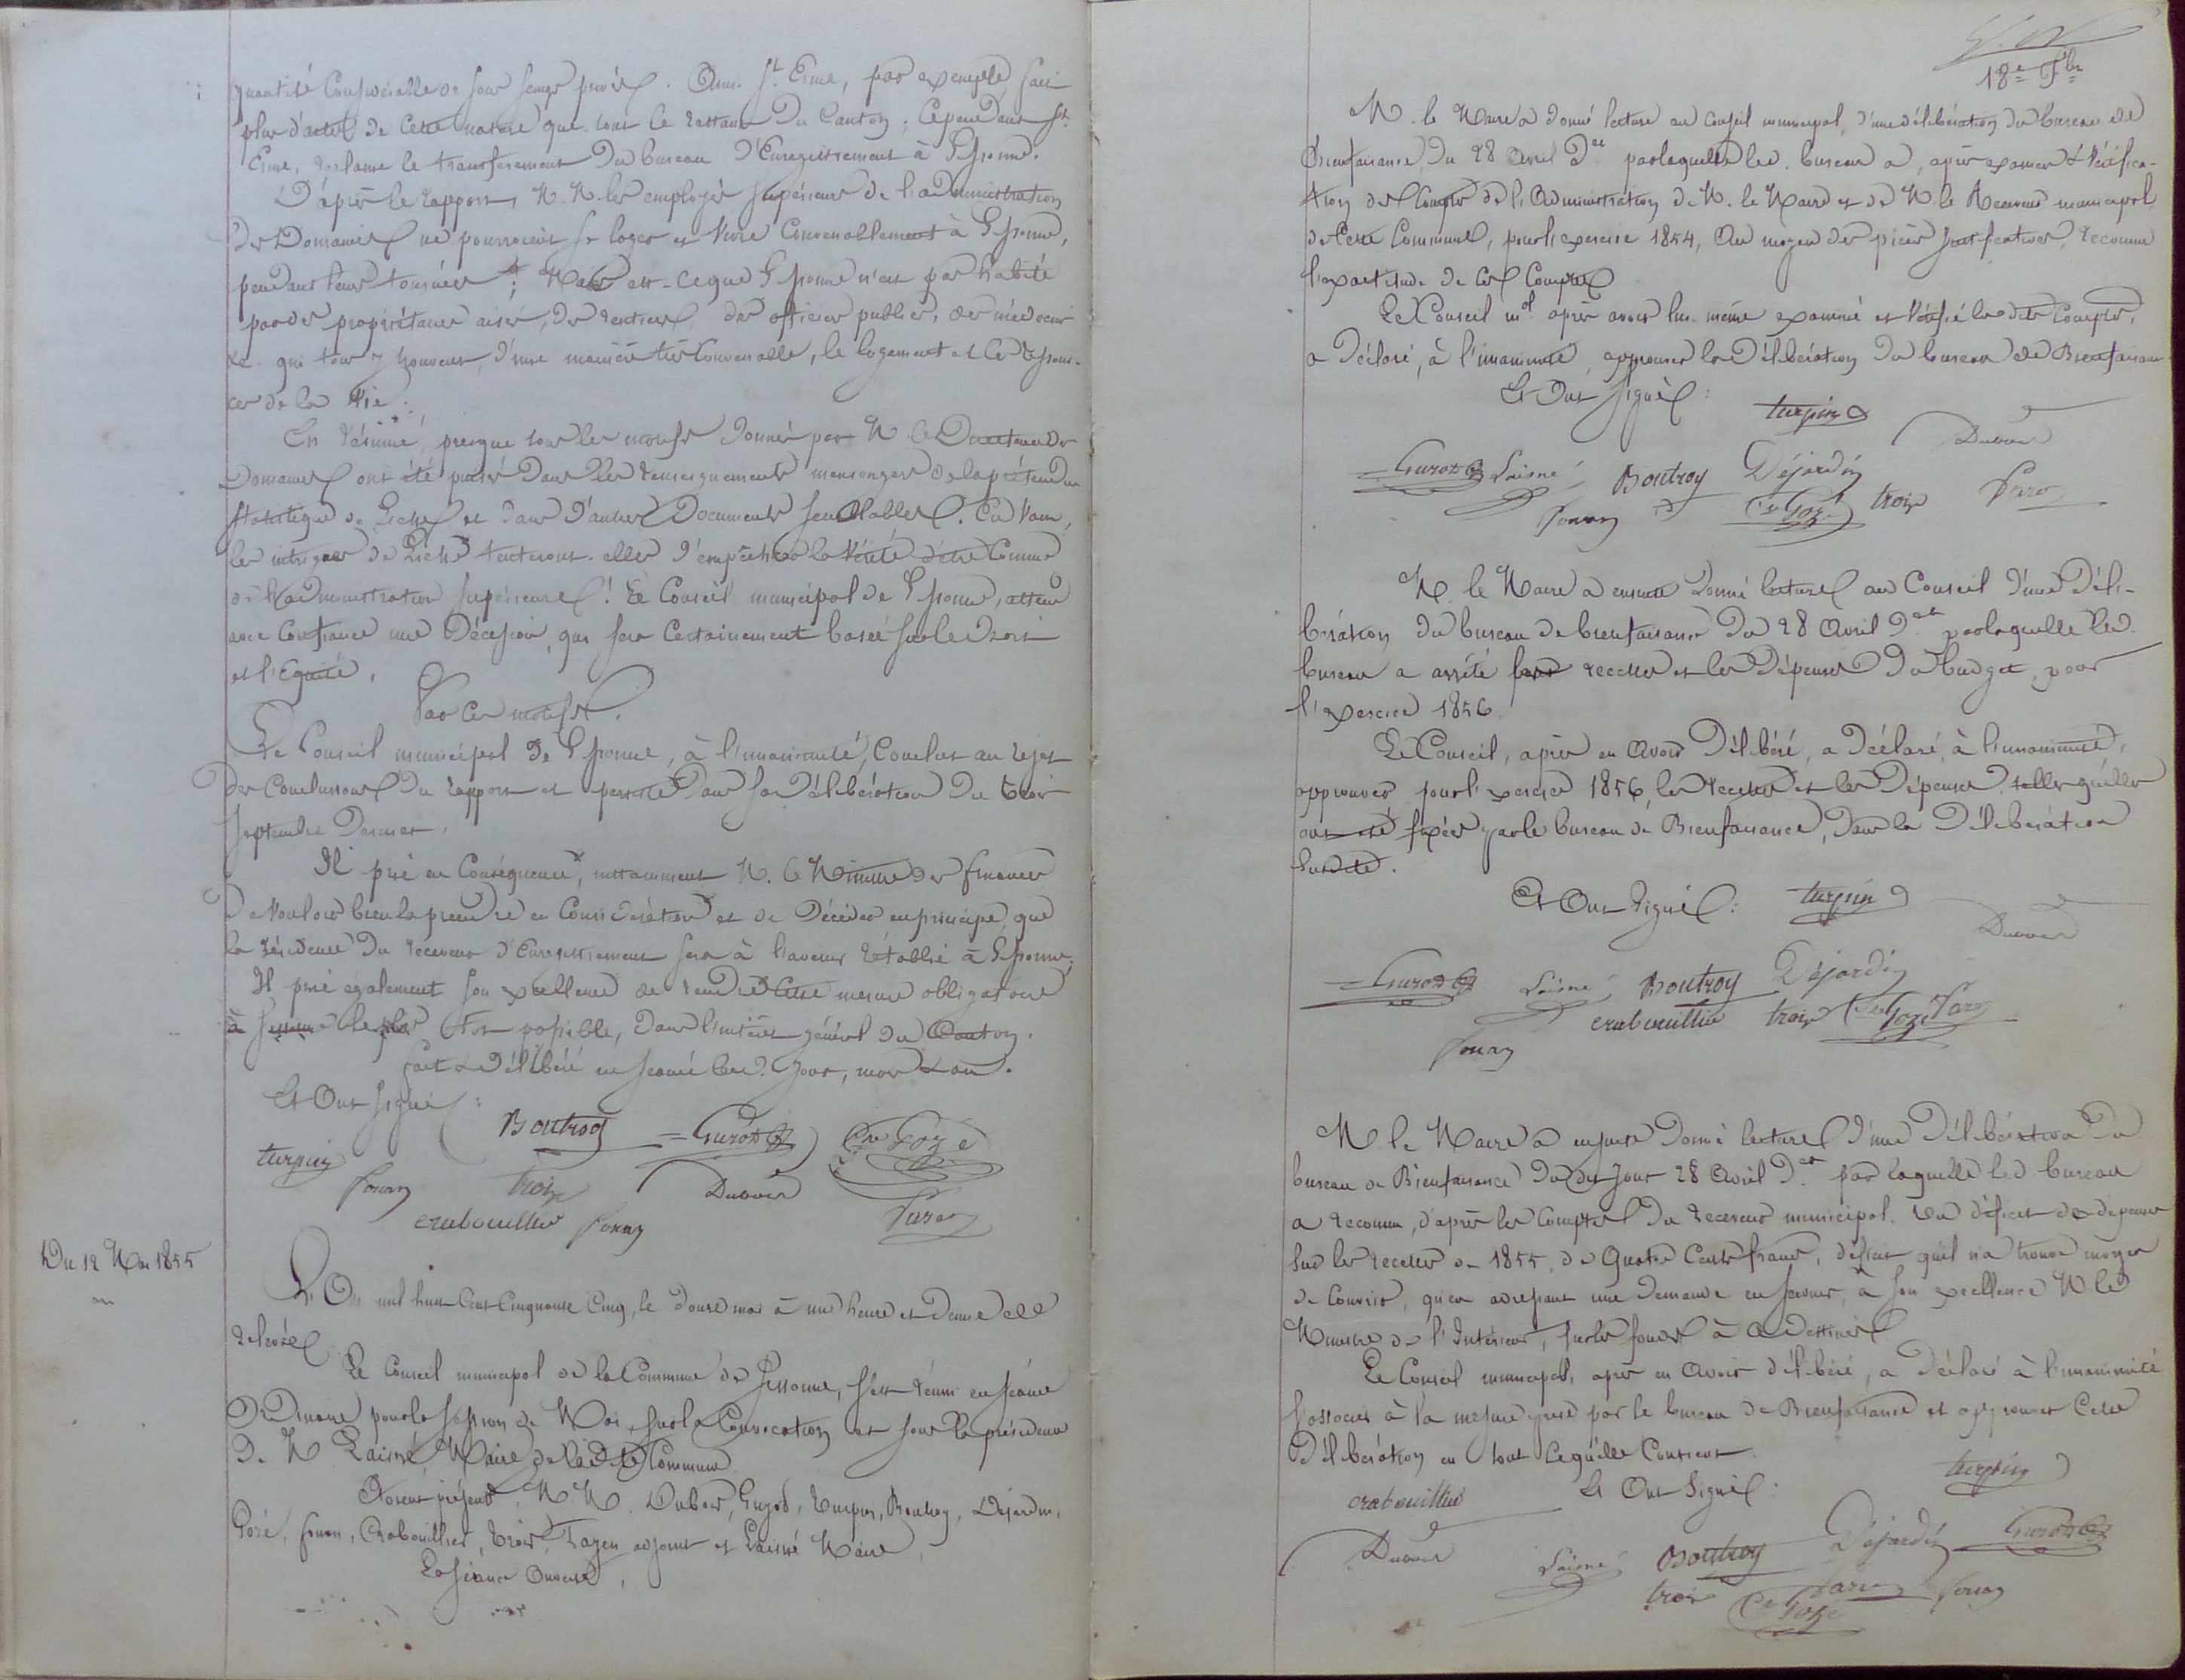 quantité considérable de sous seings privés. Ainsi St Erme, par exemple, fait
plus d'actes de cette nature que tout le restant du Canton; cependant St
Erme, réclame le transferement du bureau d'Enregistrement à Sissonne.
D'après le rapport, M.M. les employés supérieurs de l'administration
des Domaines ne pourroient se loger et vivre convenablement à Sissonne,
pendant leurs tournées; Mais est-ce que Sissonne n'est pas habité
par des propriétaires aisés, des rentiers, des officiers publics, des médecins
&c. qui tous y trouvent, d'une manière très convenable, le logement et les ressour-
ces de la Vie.
En résumé, presque tous les motifs donnés par M. le Directeur des
Domaines ont été puisés dans les renseignements mensongers de la prétendue
statistique de Liesse et dans d'autres documents semblables. En vain,
les intrigues de Liesse tenteront-elles d'empêcher la Vérité d'être Connue
de l'administration supérieure! Le Conseil municipal de Sissonne, attend
avec Confiance une Décision, qui sera Certainement basée sur le droit
et l'Equité.
Par Ces motifs.
Le Conseil municipal de Sissonne, à l'unanimité, Conclut au rejet
des Conclusions du rapport et persiste dans sa délibération du trois
septembre dernier.
Il prie en Conséquence, instamment M. le Ministre des finances
de Vouloir bien la prendre en Considération et de Décider en principe, que
la résidence du receveur d'Enregistrement sera à l'avenir rétablie à Sissonne.
Il prie également son excellence de rendre Cette mesure obligatoire
le plus tôt possible, dans l'intérêt général du Canton.
Fait & délibéré en séance lesd. jour, mois & an.
Et Ont signé:
Boutroy Guyot Cre Gozé
turpin fouan trois Dubois
crabouillier fouan
Du 12 Mai 1855
L'An mil huit Cent Cinquante Cinq, le douze mai à une heure et demie de
relevée
Le Conseil municipal de la Commune de Sissonne, s'est réuni en séance
Ordinaire pour la session de Mai, sur la Convocation et sous la présidence
de M. Laisné, Maire de ladite Commune
Etaient présents, M.M. Dubois, Guyot, Turpin, Boutroy, Déjardin,
Gozé, fouan, Crabouillier, Trois, adjoint et Laisné Maire,
La séance Ouverte,
18e
M. le Maire a donné lecture au Conseil municipal, d'une délibération du bureau de
Bienfaisance, du 28 Avril der par laquelle led. bureau a, après examen & Vérifica-
tion des Comptes de l'Administration de M. le Maire et de M. le Receveur municipal
de Cette Commune, pour l'exercice 1854, Au moyen des pièces justificatives, reconnu
l'exactitude de ces Comptes
Le Conseil mal après avoir lui-même examiné et Vérifié lesdits Comptes,
a déclaré, à l'unanimité, approuver la délibération du bureau de Bienfaisance
Et Ont signé:
turpin Dubois
Guyot Laisné Boutroy Déjardin
fouan Cre Gozé trois
M. le Maire a ensuite donné lecture au Conseil d'une déli-
bération du bureau de bienfaisance du 28 Avril der par laquelle led.
bureau a arrêté les recettes et les dépenses du budget, pour
l'exercice 1856.
Le Conseil, après en Avoir délibéré, a déclaré, à l'unanimité,
approuver pour l'exercice 1856, les recettes et les dépenses telles qu'elles
ont été fixées par le bureau de Bienfaisance, dans la délibération
susdite.
Et Ont Signé: turpin
Dubois
Guyot Laisné Boutroy Déjardin
crabouillier trois Cre Gozé
fouan
M. le Maire a ensuite donné lecture d'une délibération du
bureau de Bienfaisance dudit jour 28 Avril der par laquelle led. bureau
a reconnu, d'après les Comptes du receveur municipal, un déficit des dépenses
sur les recettes de 1855, de Quatre Cents francs, déficit qu'il n'a trouvé moyen
de Couvrir, qu'en adressant une demande en secours, à son excellence M. le
Ministre de l'Intérieur, sur les fonds à ce destinés
Le Conseil municipal, après en Avoir délibéré, a déclaré à l'unanimité
s'associer à la mesure prise par le bureau de Bienfaisance et approuver Cette
Délibération en tout ce qu'elle Contient.
Et Ont Signé: turpin
crabouillier
Dubois Laisné Boutroy Déjardin Guyot
trois fouan
Cre Gozé